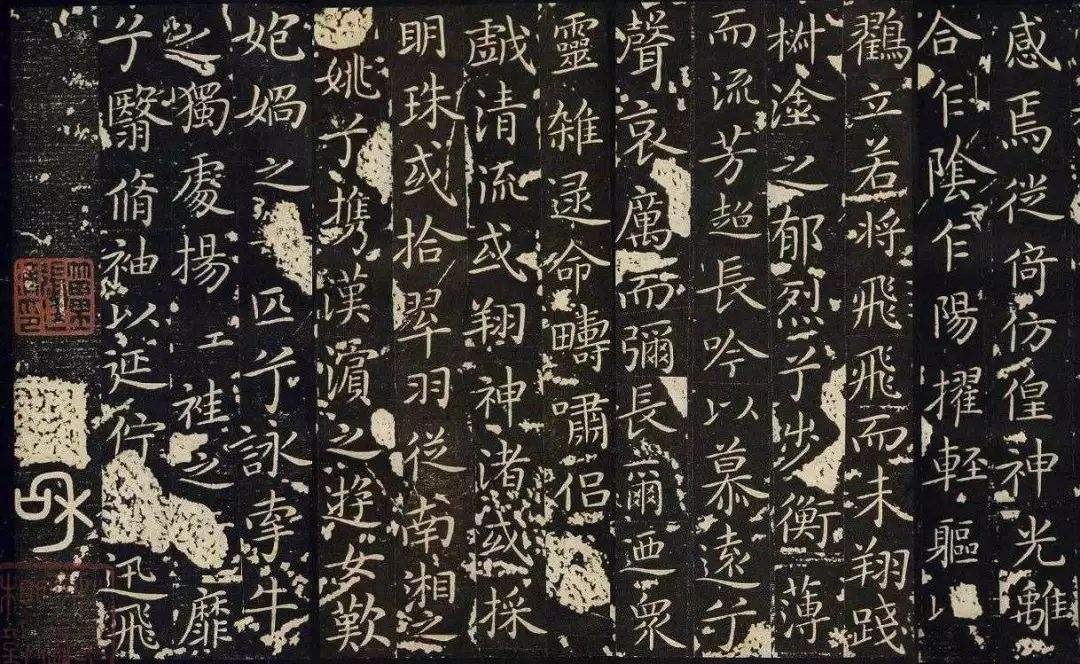 感焉徙倚仿偟神光離
合乍陰乍陽擢輕軀以
鶴立若將飛飛而未翔踐
椒塗之郁烈兮步衡薄
而流芳超長吟以慕遠兮
聲哀厲而彌長爾迺眾
靈雜遝命疇嘯侶
戲清流或翔神渚或採
明珠或拾翠羽從南相之
姚兮攜漢濱之遊女歎
媧之匹兮詠牽牛
之獨處揚袿之靡
兮翳脩袖以延佇迅飛